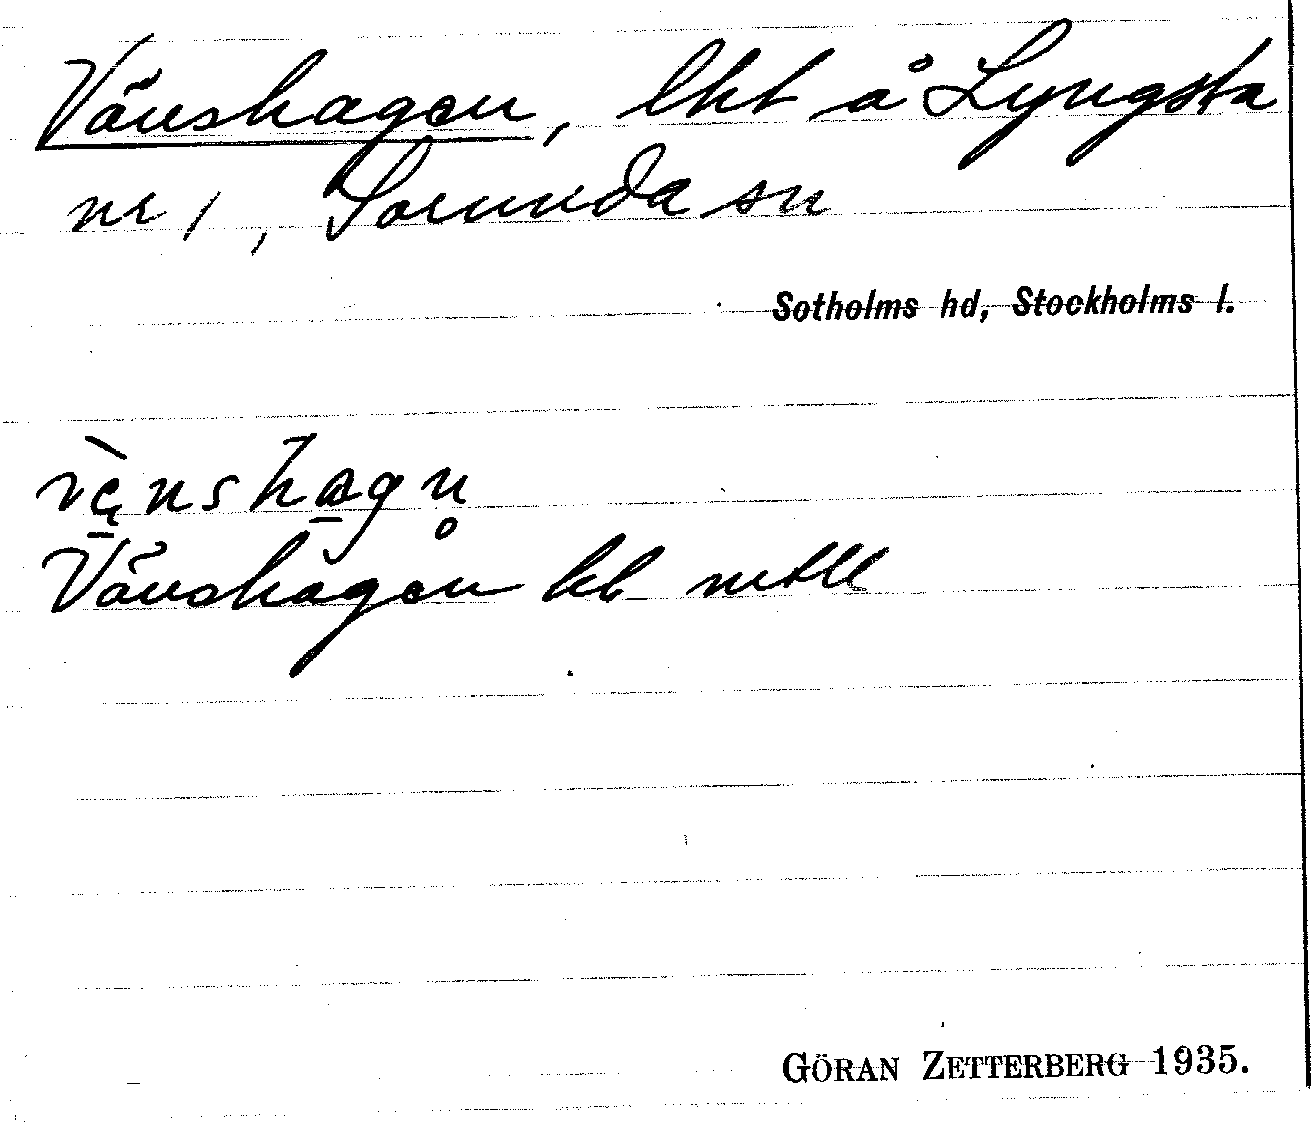 Vänshagen, lht å Lyngsta
nr 1, Sorunda sn
Sotholms hd, Stockholms l.
vęnshagn̥
Vänshagen kb mtll
GÖRAN ZETTERBERG 1935.